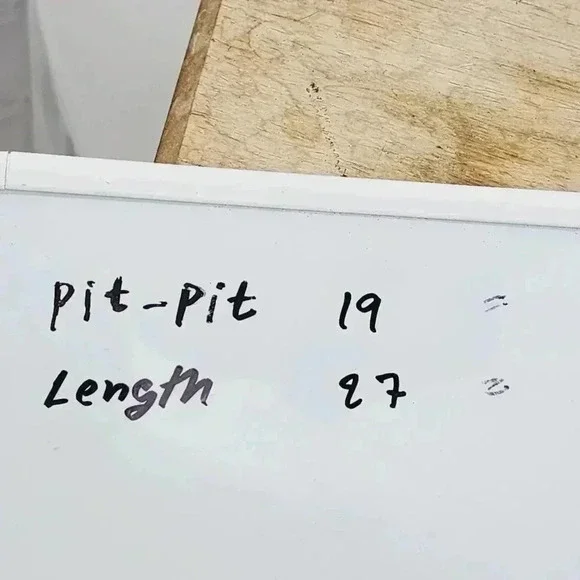 Pit-Pit 19 "
Length 27 "